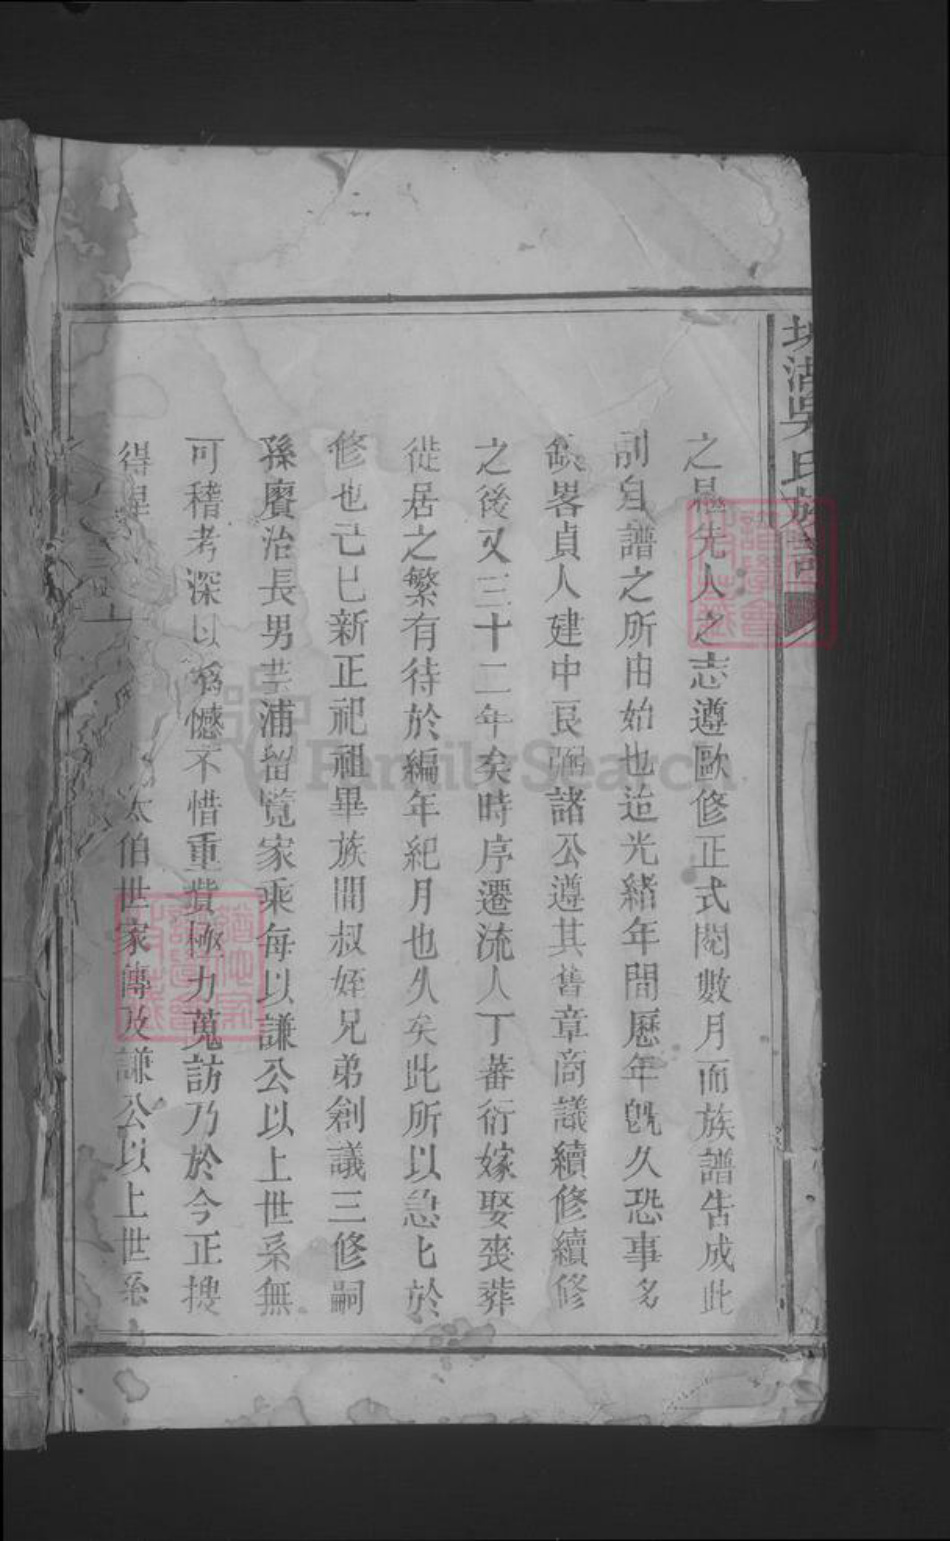 湖吳氏族
之恳先人之志遵歐修正式閱數月而族譜告成此
創自譜之所由始也迨光緒年間歷年旣久恐事多
缺畧貞人建中良弼諸公遵其舊章商議續修續修
之後又三十二年矣時序遷流人丁蕃衍嫁娶喪葬
從居之繁有待於編年紀月也久矣此所以急七於
修也己巳新正祀祖畢族間叔姪兄弟創議三修嗣
孫賡治長男芸浦留覽家乘每以謙公以上世系無
可稽考深以為憾不惜重貲極力蒐訪乃於今正搜
得 上 太伯世家傳及謙公以上世系
FamilySearch